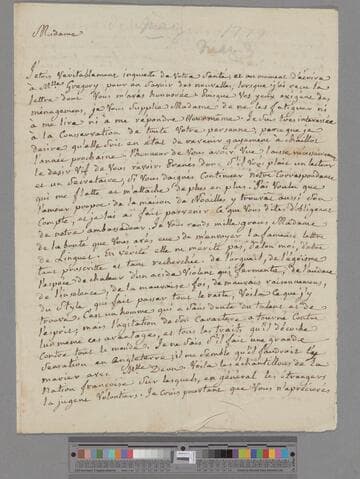 Madame
J'etois veritablement inquiete de votre santé, et au moment d'écrire
à Mlle Gregory pour en savoir des nouvelles, lorsque j'ai reçu la
lettre dont vous m'avés honnorée. puisque vos yeux exigent des
menagemens, je vous supplie Madame de ne les fatiguer ni
à me lire ni à me répondre vous même. je suis très interessée
à la Conservation de toute votre personne, parce que je
desire qu'elle soit en état de revenir gayement à Chaillot
l'année prochaine. l'honneur de vous avoir vüe laisse
le desir vif de vous revoir. Prenés donc s'il vous plait un lecteur
et un Secretaire, si vous daignés Continuer notre Correspondance
qui me flatte et m'attache de plus en plus. J'ai voulu que
l'amour propre de la maison de Noailles y trouvat aussi son
Compte, et je lui ai fait parvenir ce que vous dites d'obligeant
de notre ambassadeur. Je vous rends mille graces Madame
de la bonté que vous avés eue de m'envoyer la fameuse lettre
de Linguet. En verité elle ne mérite pas, selon moi, d'etre
tant proscritte et tant recherchée. de l'orgueil, de l'égoisme
l'espece de chaleur d'un acide violent qui fermente, de l'audace
de l'insolence, de la mauvaise foi, de mauvais raisonnemens,
du Style qui fait passer tout le reste; voila ce que j'y
trouve. C'est un homme qui a sans doute du talent et de
l'esprit; mais l'agitation de son Caractere a tourné Contre
lui meme ces avantages, et tous les traits qu'il décoche
Contre tout le monde. Je ne sais s'il fait une grande
Sensation en Angleterre, il me semble qu'il faudroit le
marier avec Mlle Deon. Voila les échantillons de la
Nation françoise sur lesquels, en général les étrangers
la jugent volontiers. Je crois pourtant que vous n'apercevés